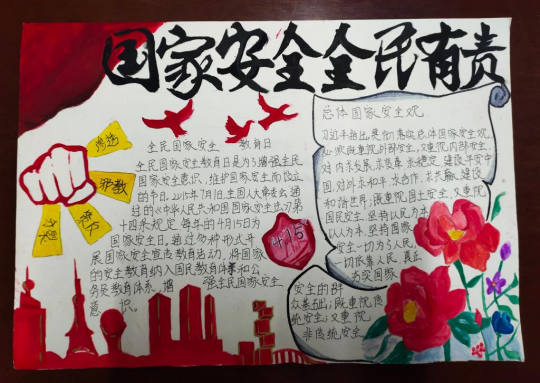 国家安全全民有责
全民国家安全 教育日
全民国家安全教育日是为了增强全民
国家安全意识，维护国家安全而设立
的节日。2015年7月1日，全国人大常委会通
过的《中华人民共和国国家安全法》第
十四条规定每年的4月15日为
国家安全日。通过多种形式开
展国家安全宣传教育活动，将国家
的安全教育纳入国民教育体系和公
务员教育体系，增 强全民国家安全
意识。
邪教
4.15
总体国家安全观
习近平指出，贯彻落实总体国家安全观，
必须既重视外部安全，又重视内部安全，
对内求发展、求变革、求稳定、建设平安中
国，对外求和平、求合作、求共赢、建设
和谐世界；既重视国土安全，又重视
国民安全，坚持以民为本、
以人为本，坚持国家
安全一切为了人民，
一切依靠人民，真正
夯实国家
安全的群
众基础；既重视传
统安全，又重视
非传统安全